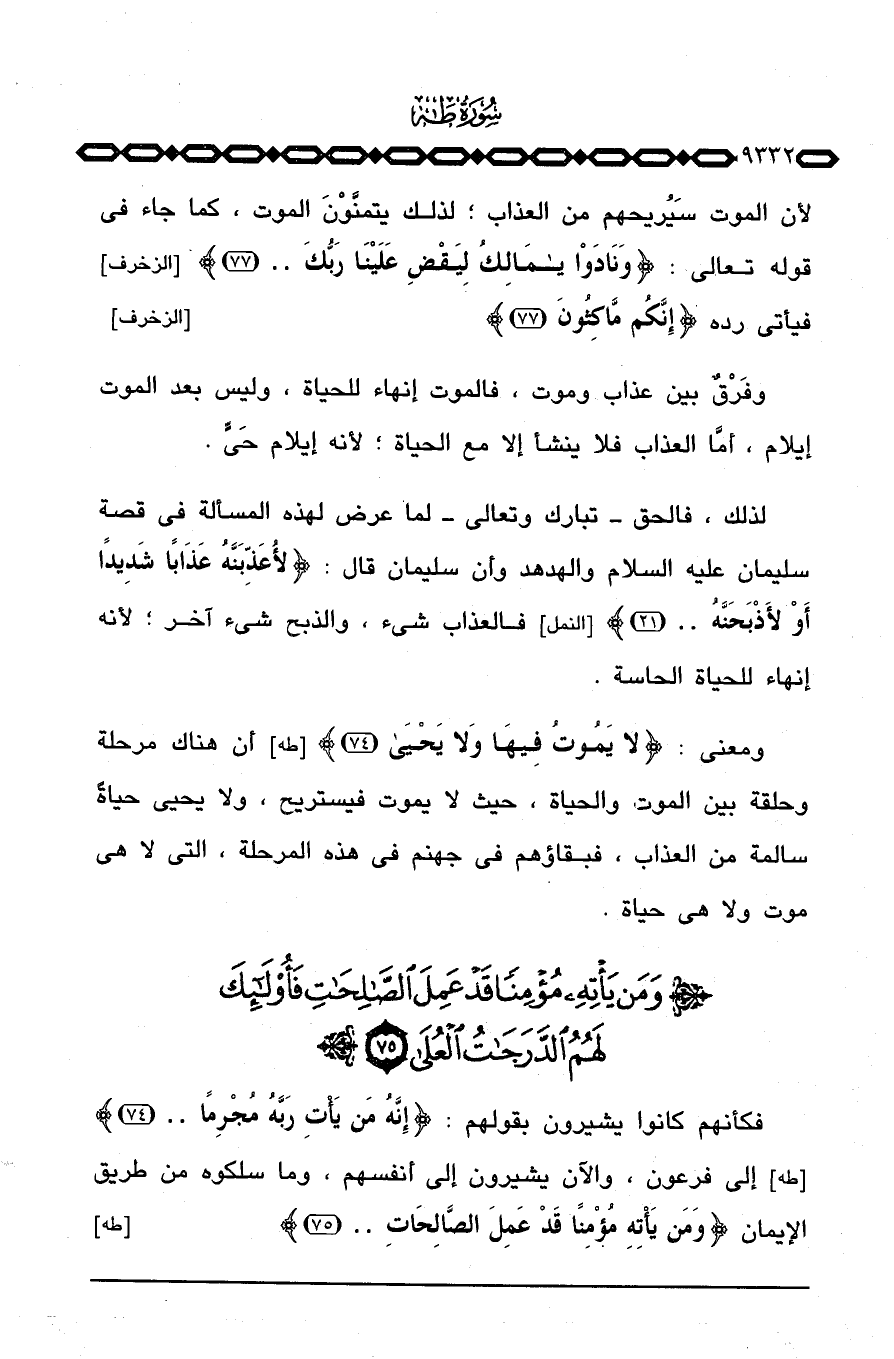 سُورَةُ طٰهٰ
٩٣٣٢
لأن الموت سَيُريحهم من العذاب ؛ لذلك يتمنَّوْنَ الموت ، كما جاء فى
قوله تعالى : ﴿ وَنَادَوْا يَـٰمَالِكُ لِيَقْضِ عَلَيْنَا رَبُّكَ .. (٧٧) ﴾ [الزخرف]
فيأتى رده ﴿ إِنَّكُم مَّاكِثُونَ (٧٧) ﴾ [الزخرف]
وفَرْقٌ بين عذاب وموت ، فالموت إنهاء للحياة ، وليس بعد الموت
إيلام ، أمَّا العذاب فلا ينشأ إلا مع الحياة ؛ لأنه إيلام حَىٍّ .
لذلك ، فالحق - تبارك وتعالى - لما عرض لهذه المسألة فى قصة
سليمان عليه السلام والهدهد وأن سليمان قال : ﴿ لأُعَذِّبَنَّهُ عَذَابًا شَدِيدًا
أَوْ لأَذْبَحَنَّهُ .. (٢١) ﴾ [النمل] فالعذاب شىء ، والذبح شىء آخر ؛ لأنه
إنهاء للحياة الحاسة .
ومعنى : ﴿ لا يَمُوتُ فِيهَا وَلا يَحْيَىٰ (٧٤) ﴾ [طه] أن هناك مرحلة
وحلقة بين الموت والحياة ، حيث لا يموت فيستريح ، ولا يحيى حياةً
سالمة من العذاب ، فبقاؤهم فى جهنم فى هذه المرحلة ، التى لا هى
موت ولا هى حياة .
﴿ وَمَن يَأْتِهِۦ مُؤْمِنًا قَدْ عَمِلَ ٱلصَّـٰلِحَـٰتِ فَأُو۟لَـٰٓئِكَ
لَهُمُ ٱلدَّرَجَـٰتُ ٱلْعُلَىٰ (٧٥) ﴾
فكأنهم كانوا يشيرون بقولهم : ﴿ إِنَّهُ مَن يَأْتِ رَبَّهُ مُجْرِمًا .. (٧٤) ﴾
[طه] إلى فرعون ، والآن يشيرون إلى أنفسهم ، وما سلكوه من طريق
الإيمان ﴿ وَمَن يَأْتِهِ مُؤْمِنًا قَدْ عَمِلَ الصَّالِحَاتِ .. (٧٥) ﴾ [طه]